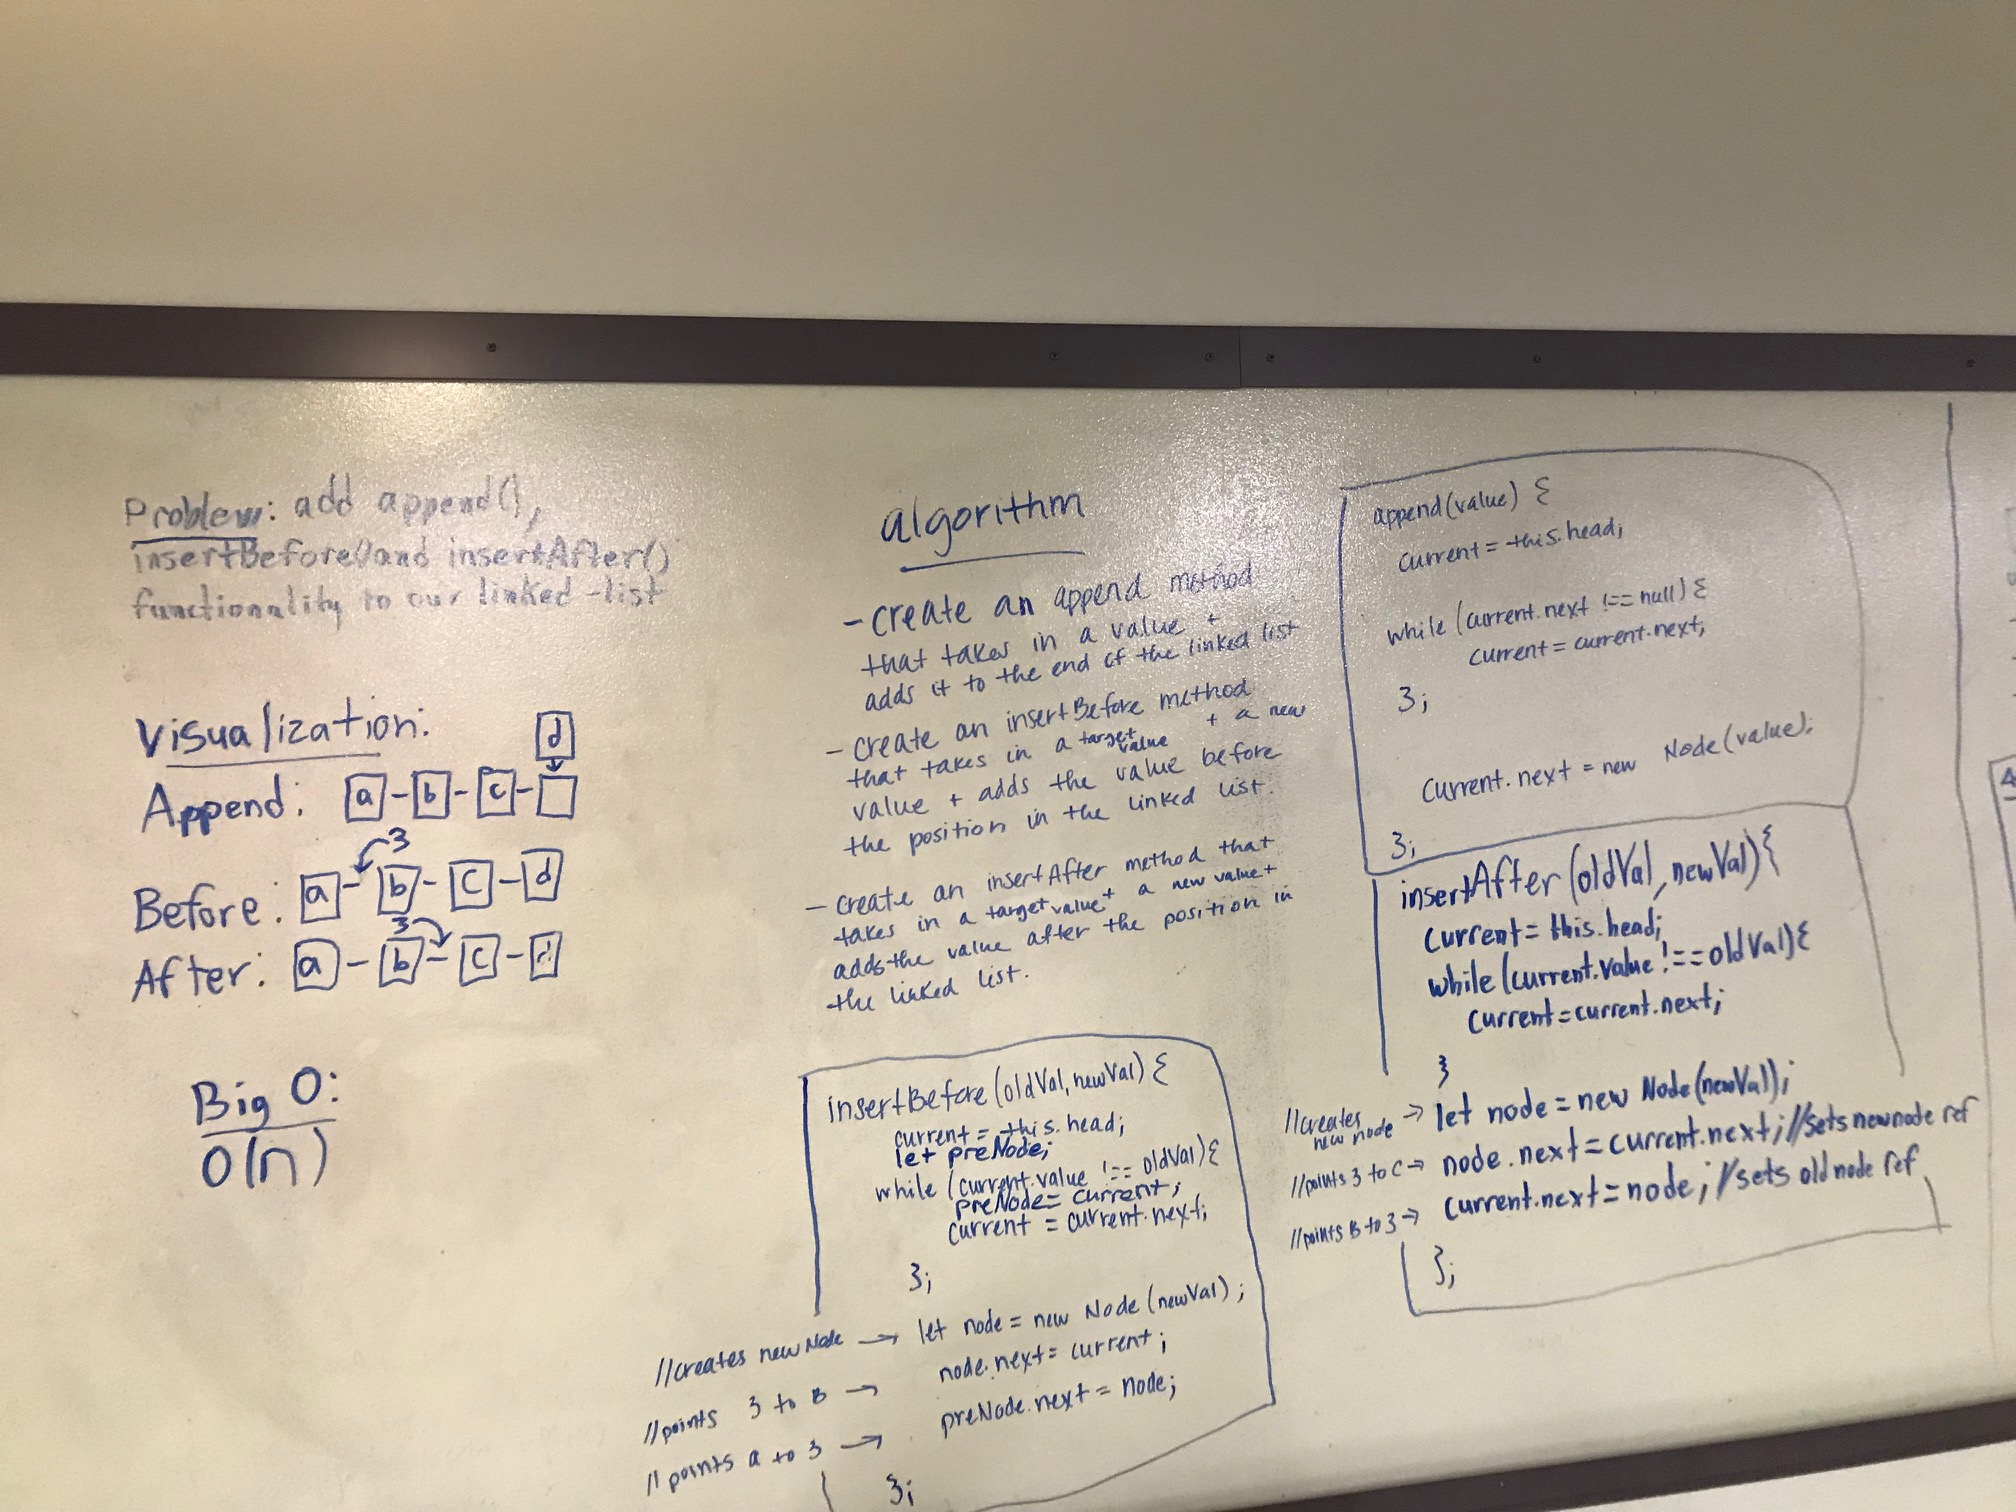 Problem: add append(),
insertBefore() and insertAfter()
functionality to our linked-list
Visualization:
d
Append: a - b - c -
3
Before: a - b - c - d
3
After: a - b - c - d
Big O:
O(n)
algorithm
- create an append method
that takes in a value +
adds it to the end of the linked list
- create an insertBefore method
that takes in a target value + a new
value + adds the value before
the position in the linked list.
- create an insertAfter method that
takes in a target value + a new value +
adds the value after the position in
the linked list.
insertBefore(oldVal, newVal) {
current = this.head;
let preNode;
while (current.value !== oldVal) {
preNode = current;
current = current.next;
};
//creates new Node → let node = new Node(newVal);
//points 3 to B → node.next = current;
//points a to 3 → preNode.next = node;
};
append(value) {
current = this.head;
while (current.next !== null) {
current = current.next;
};
Current.next = new Node(value);
};
insertAfter(oldVal, newVal) {
current = this.head;
while (current.value !== oldVal) {
current = current.next;
}
//creates new node → let node = new Node(newVal);
//points 3 to C → node.next = current.next; //sets new node ref
//points B to 3 → current.next = node; //sets old node ref
};